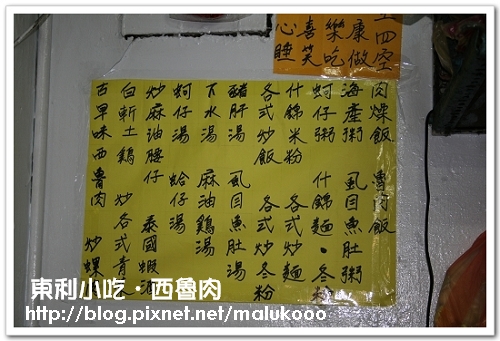 肉燥飯 魯肉飯
海產粥 虱目魚肚粥
蚵仔粥 什錦麵・各式冬粉
什錦米粉 各式炒麵
各式炒飯 各式炒冬粉
豬肝湯 虱目魚肚湯
下水湯 麻油雞湯
蚵仔湯 蛤仔湯
炒麻油腰仔 泰國蝦
白斬土雞 炒各式青
古早味西魯肉 炒螺
四空
康做
樂吃
喜笑
心睡
東利小吃・西魯肉
http://blog.pixnet.net/malukooo